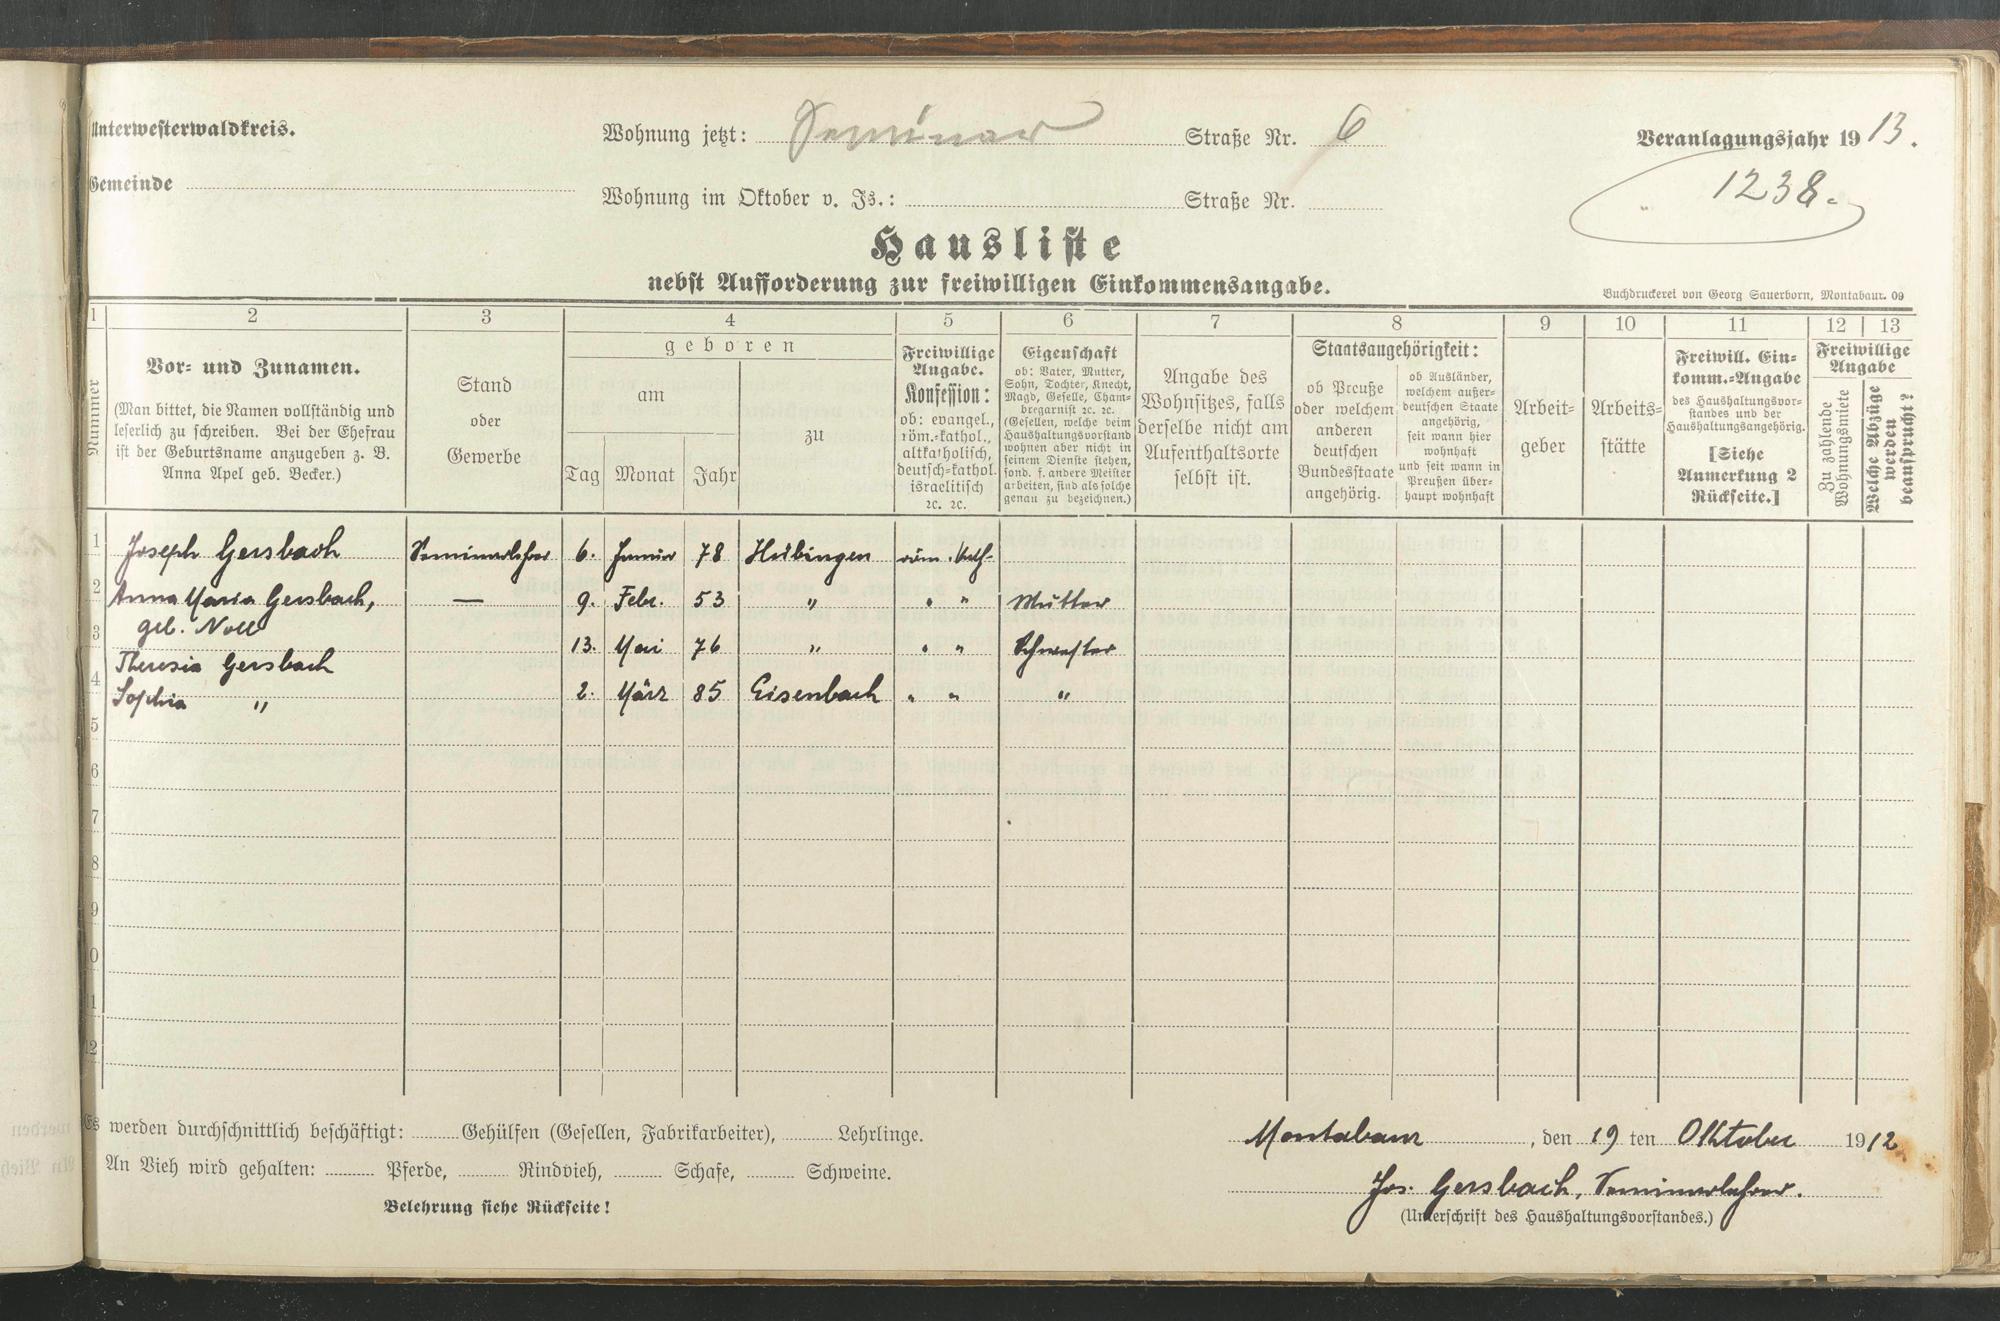 Unterwesterwaldkreis.
Wohnung jetzt: Seminar Straße Nr. 6
Veranlagungsjahr 1913.
Gemeinde
Wohnung im Oktober v. Js.: Straße Nr.
1238.
Hausliste
nebst Aufforderung zur freiwilligen Einkommensangabe.
Buchdruckerei von Georg Sauerborn, Montabaur. 09
1 2 3 4 5 6 7 8 9 10 11 12 13
Nummer
Vor- und Zunamen.
(Man bittet, die Namen vollständig und
leserlich zu schreiben. Bei der Ehefrau
ist der Geburtsname anzugeben z. B.
Anna Apel geb. Becker.)
Stand
oder
Gewerbe
geboren
am
Tag Monat Jahr
zu
Freiwillige
Angabe.
Konfession:
ob: evangel.,
röm.-kathol.,
altkatholisch,
deutsch-kathol.
israelitisch
ꝛc. ꝛc.
Eigenschaft
ob: Vater, Mutter,
Sohn, Tochter, Knecht,
Magd, Geselle, Cham-
bregarnist ꝛc. ꝛc.
(Gesellen, welche beim
Haushaltungsvorstand
wohnen aber nicht in
seinem Dienste stehen,
sond. f. andere Meister
arbeiten, sind als solche
genau zu bezeichnen.)
Angabe des
Wohnsitzes, falls
derselbe nicht am
Aufenthaltsorte
selbst ist.
Staatsangehörigkeit:
ob Preuße
oder welchem
anderen
deutschen
Bundesstaate
angehörig.
ob Ausländer,
welchem außer-
deutschen Staate
angehörig,
seit wann hier
wohnhaft
und seit wann in
Preußen über-
haupt wohnhaft
Arbeit-
geber
Arbeits-
stätte
Freiwill. Ein-
komm.-Angabe
des Haushaltungsvor-
standes und der
Haushaltungsangehörig.
[Siehe
Anmerkung 2
Rückseite.]
Freiwillige
Angabe
Zu zahlende
Wohnungsmiete
Welche Abzüge
werden
beansprucht?
1 Joseph Gersbach Seminarlehrer 6. Januar 78 Hübingen röm. kath.
2 Anna Maria Gersbach, — 9. Febr. 53 " " " Mutter
geb. Noll
3 Theresia Gersbach 13. Mai 76 " " " Schwester
4 Sophia " 2. März 85 Eisenbach " " "
5
6
7
8
9
10
11
12
Es werden durchschnittlich beschäftigt: Gehülfen (Gesellen, Fabrikarbeiter), Lehrlinge.
An Vieh wird gehalten: Pferde, Rindvieh, Schafe, Schweine.
Belehrung siehe Rückseite!
Montabaur, den 19 ten Oktober 1912
Jos. Gersbach, Seminarlehrer.
(Unterschrift des Haushaltungsvorstandes.)